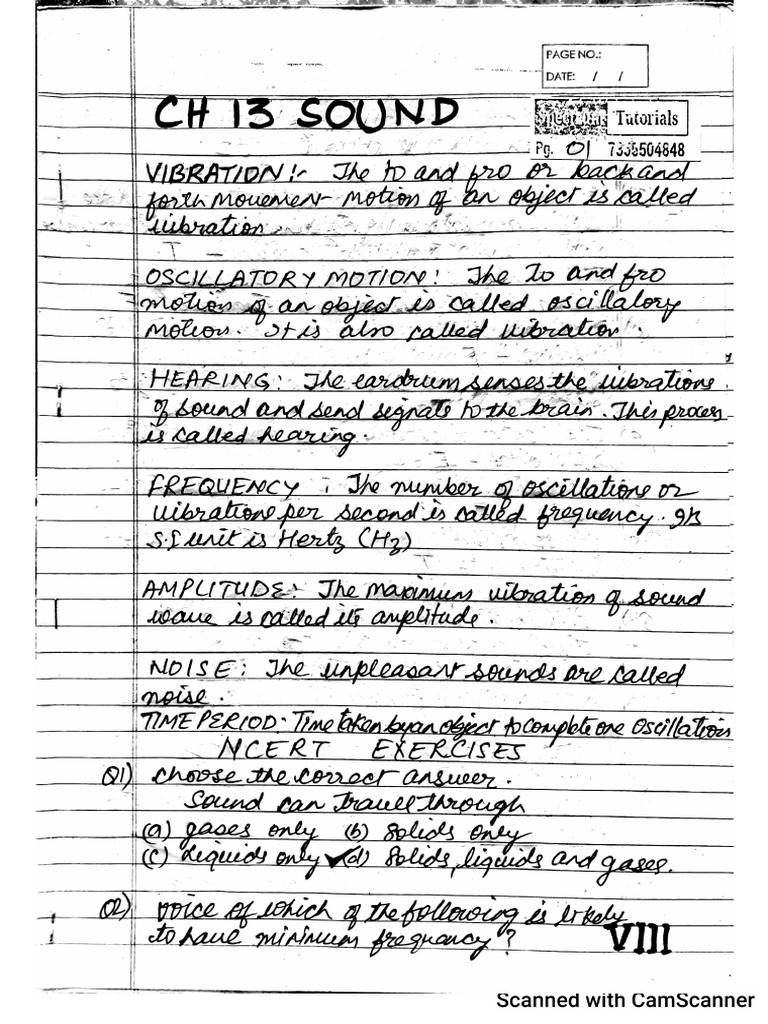 PAGE NO.:
DATE: / /
CH 13 SOUND
Tutorials
Pg. 01 7338504848
VIBRATION:- The to and fro or back and
forth movement motion of an object is called
vibration.
OSCILLATORY MOTION: The to and fro
motion of an object is called oscillatory
motion. It is also called vibration.
HEARING: The eardrum senses the vibrations
of sound and send signals to the brain. This process
is called hearing.
FREQUENCY: The number of oscillations or
vibrations per second is called frequency. Its
S.I unit is Hertz (Hz)
AMPLITUDE: The maximum vibration of sound
wave is called its amplitude.
NOISE: The unpleasant sounds are called
noise.
TIME PERIOD: Time taken by an object to complete one Oscillations
NCERT EXERCISES
Q1) Choose the correct answer.
Sound can travel through
(a) gases only (b) Solids only
(c) Liquids only ✓(d) Solids, liquids and gases.
Q2) voice of which of the following is likely
to have minimum frequency?
VIII
Scanned with CamScanner